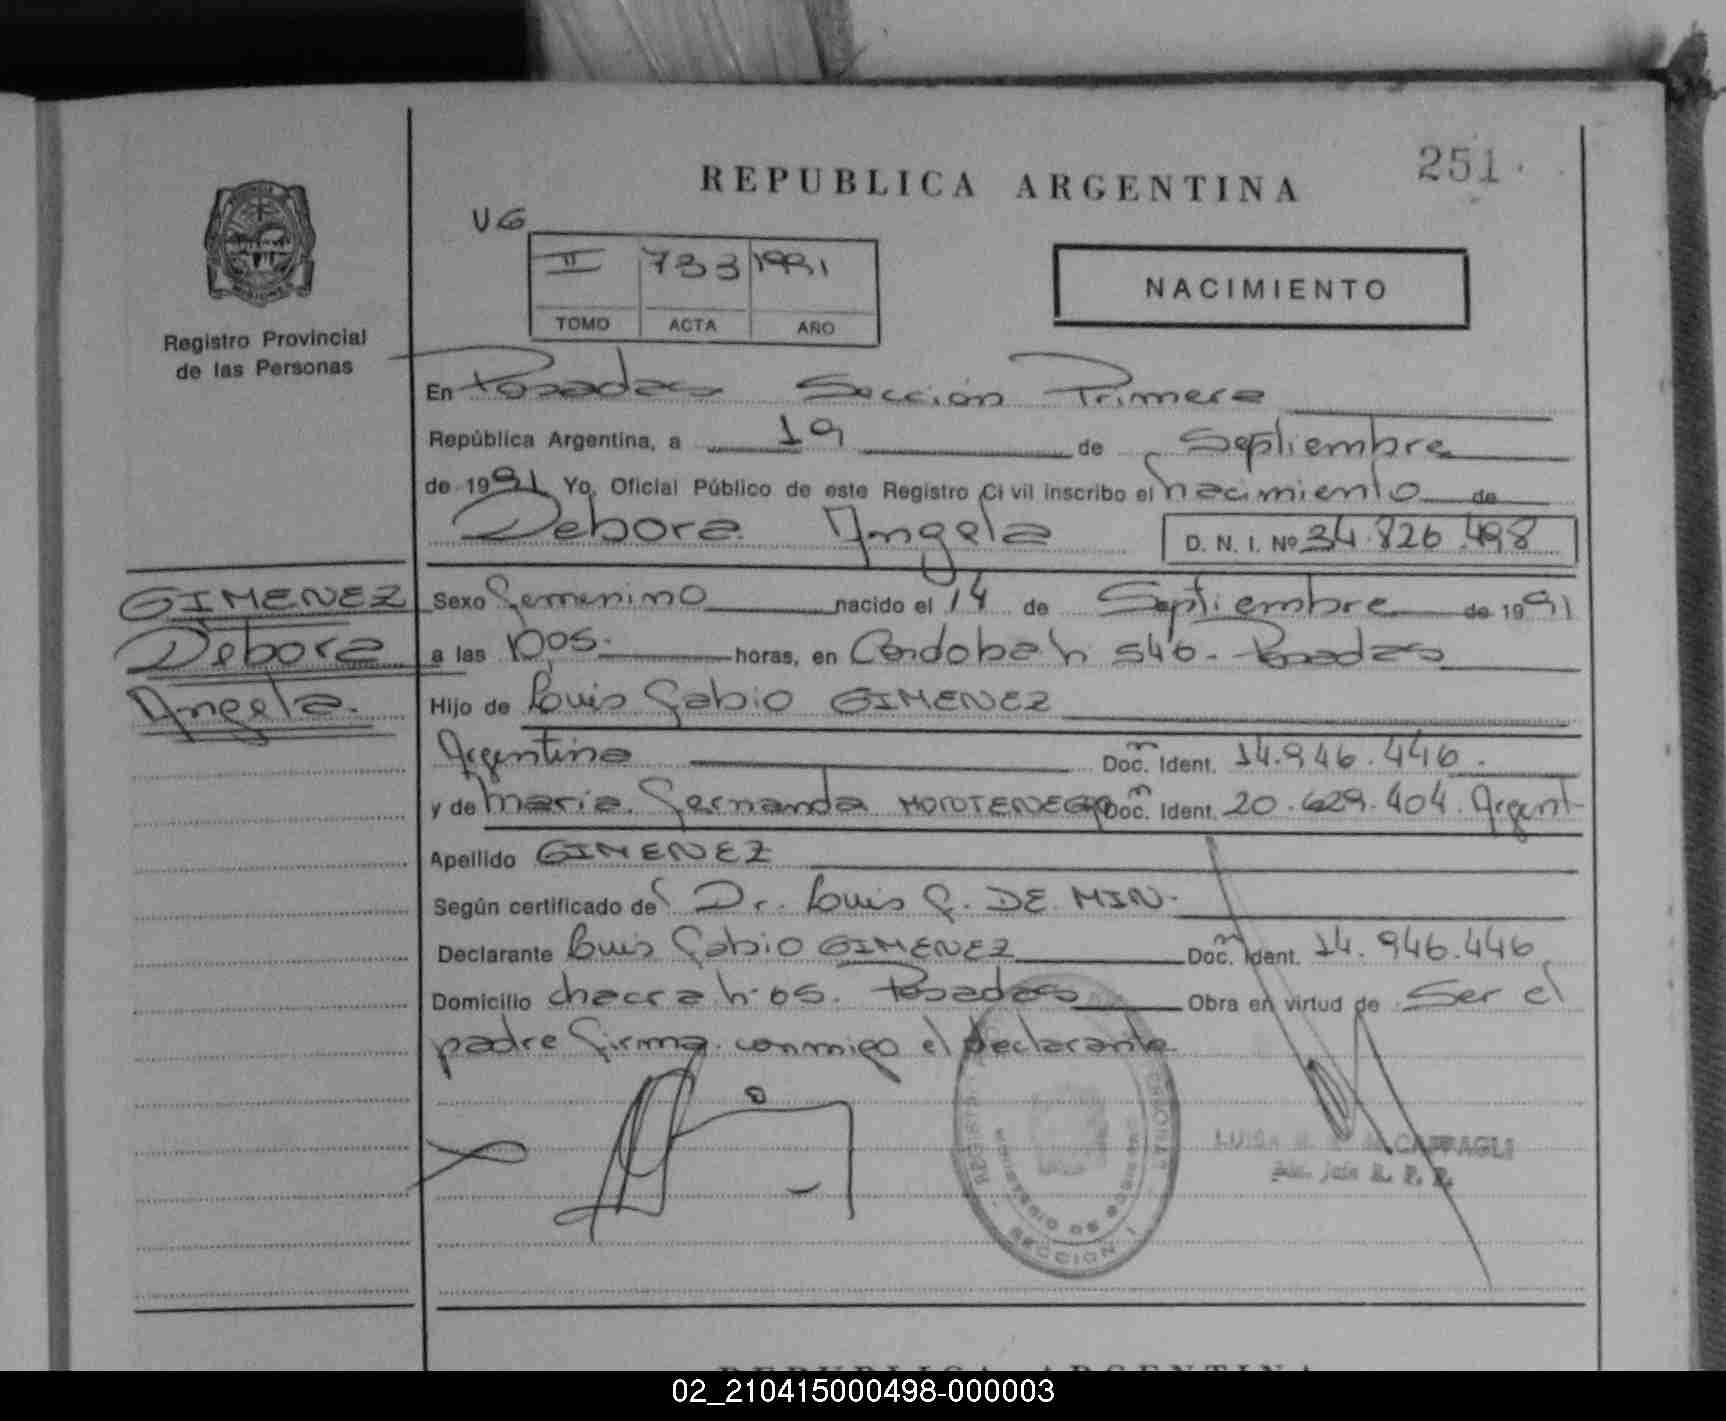 251
REPUBLICA ARGENTINA
VG
II 733 1991
TOMO ACTA AÑO
NACIMIENTO
Registro Provincial
de las Personas
En Posadas Sección Primera
República Argentina, a 19 de Septiembre
de 1991 Yo, Oficial Público de este Registro Civil inscribo el nacimiento de
Debora Angela D. N. I. Nº 34.826.498
GIMENEZ
Debora
Angela.
Sexo femenino nacido el 14 de Septiembre de 1991
a las Dos. horas, en Cordoba n 546. Posadas
Hijo de Luis Fabio GIMENEZ
Argentino Docm. Ident. 14.946.446.
y de Maria Fernanda MONTENEGRO Docm. Ident. 20.629.404. Argent-
Apellido GIMENEZ
Según certificado de Dr. Luis F. DE MIN.
Declarante Luis Fabio GIMENEZ Docm. Ident. 14.946.446
Domicilio chacra n 65. Posadas Obra en virtud de Ser el
padre firma conmigo el declarante
SECCION 1
REPUBLICA ARGENTINA
02_210415000498-000003